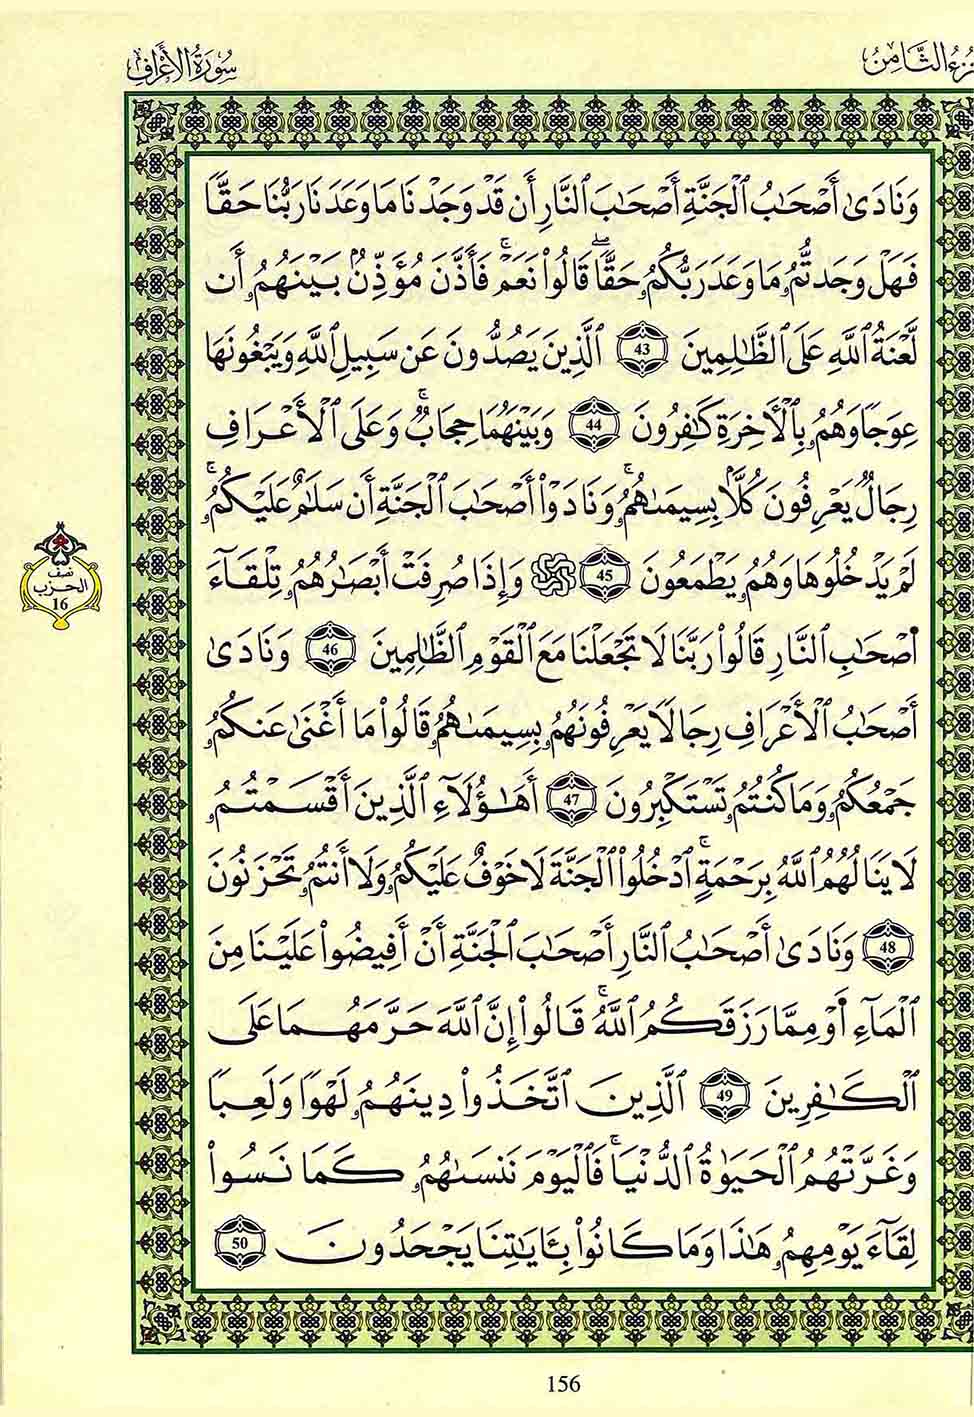 سُورَةُ الْأَعْرَافِ
الثَّامِنُ
وَنَادَىٰٓ أَصْحَٰبُ ٱلْجَنَّةِ أَصْحَٰبَ ٱلنَّارِ أَن قَدْ وَجَدْنَا مَا وَعَدَنَا رَبُّنَا حَقًّا
فَهَلْ وَجَدتُّمُۥ مَا وَعَدَ رَبُّكُمُۥ حَقًّا ۖ قَالُوا۟ نَعَمْ ۚ فَأَذَّنَ مُؤَذِّنٌۢ بَيْنَهُمُۥٓ أَن
لَّعْنَةُ ٱللَّهِ عَلَى ٱلظَّٰلِمِينَ 43 ٱلَّذِينَ يَصُدُّونَ عَن سَبِيلِ ٱللَّهِ وَيَبْغُونَهَا
عِوَجًا وَهُمُۥ بِٱلْأَخِرَةِ كَٰفِرُونَ 44 وَبَيْنَهُمَا حِجَابٌ ۚ وَعَلَى ٱلْأَعْرَافِ
رِجَالٌ يَعْرِفُونَ كُلًّۢا بِسِيمَىٰهُمُۥ ۚ وَنَادَوْا۟ أَصْحَٰبَ ٱلْجَنَّةِ أَن سَلَٰمٌ عَلَيْكُمُۥ ۚ
لَمْ يَدْخُلُوهَا وَهُمُۥ يَطْمَعُونَ 45 وَإِذَا صُرِفَتْ أَبْصَٰرُهُمُۥ تِلْقَآءَ
اَصْحَٰبِ ٱلنَّارِ قَالُوا۟ رَبَّنَا لَا تَجْعَلْنَا مَعَ ٱلْقَوْمِ ٱلظَّٰلِمِينَ 46 وَنَادَىٰٓ
أَصْحَٰبُ ٱلْأَعْرَافِ رِجَالًا يَعْرِفُونَهُمُۥ بِسِيمَىٰهُمُۥ قَالُوا۟ مَا أَغْنَىٰ عَنكُمُۥ
جَمْعُكُمُۥ وَمَا كُنتُمُۥ تَسْتَكْبِرُونَ 47 أَهَٰٓؤُلَآءِ ٱلَّذِينَ أَقْسَمْتُمُۥ
لَا يَنَالُهُمُ ٱللَّهُ بِرَحْمَةٍ ۚ ٱدْخُلُوا۟ ٱلْجَنَّةَ لَا خَوْفٌ عَلَيْكُمُۥ وَلَا أَنتُمُۥ تَحْزَنُونَ
48 وَنَادَىٰٓ أَصْحَٰبُ ٱلنَّارِ أَصْحَٰبَ ٱلْجَنَّةِ أَنْ أَفِيضُوا۟ عَلَيْنَا مِنَ
ٱلْمَآءِ اَوْ مِمَّا رَزَقَكُمُ ٱللَّهُ ۚ قَالُوا۟ إِنَّ ٱللَّهَ حَرَّمَهُمَا عَلَى
ٱلْكَٰفِرِينَ 49 ٱلَّذِينَ ٱتَّخَذُوا۟ دِينَهُمُۥ لَهْوًا وَلَعِبًا
وَغَرَّتْهُمُ ٱلْحَيَوٰةُ ٱلدُّنْيَا ۚ فَٱلْيَوْمَ نَنسَىٰهُمُۥ كَمَا نَسُوا۟
لِقَآءَ يَوْمِهِمُۥ هَٰذَا وَمَا كَانُوا۟ بِـَٔايَٰتِنَا يَجْحَدُونَ 50
نصف
الحزب
16
156